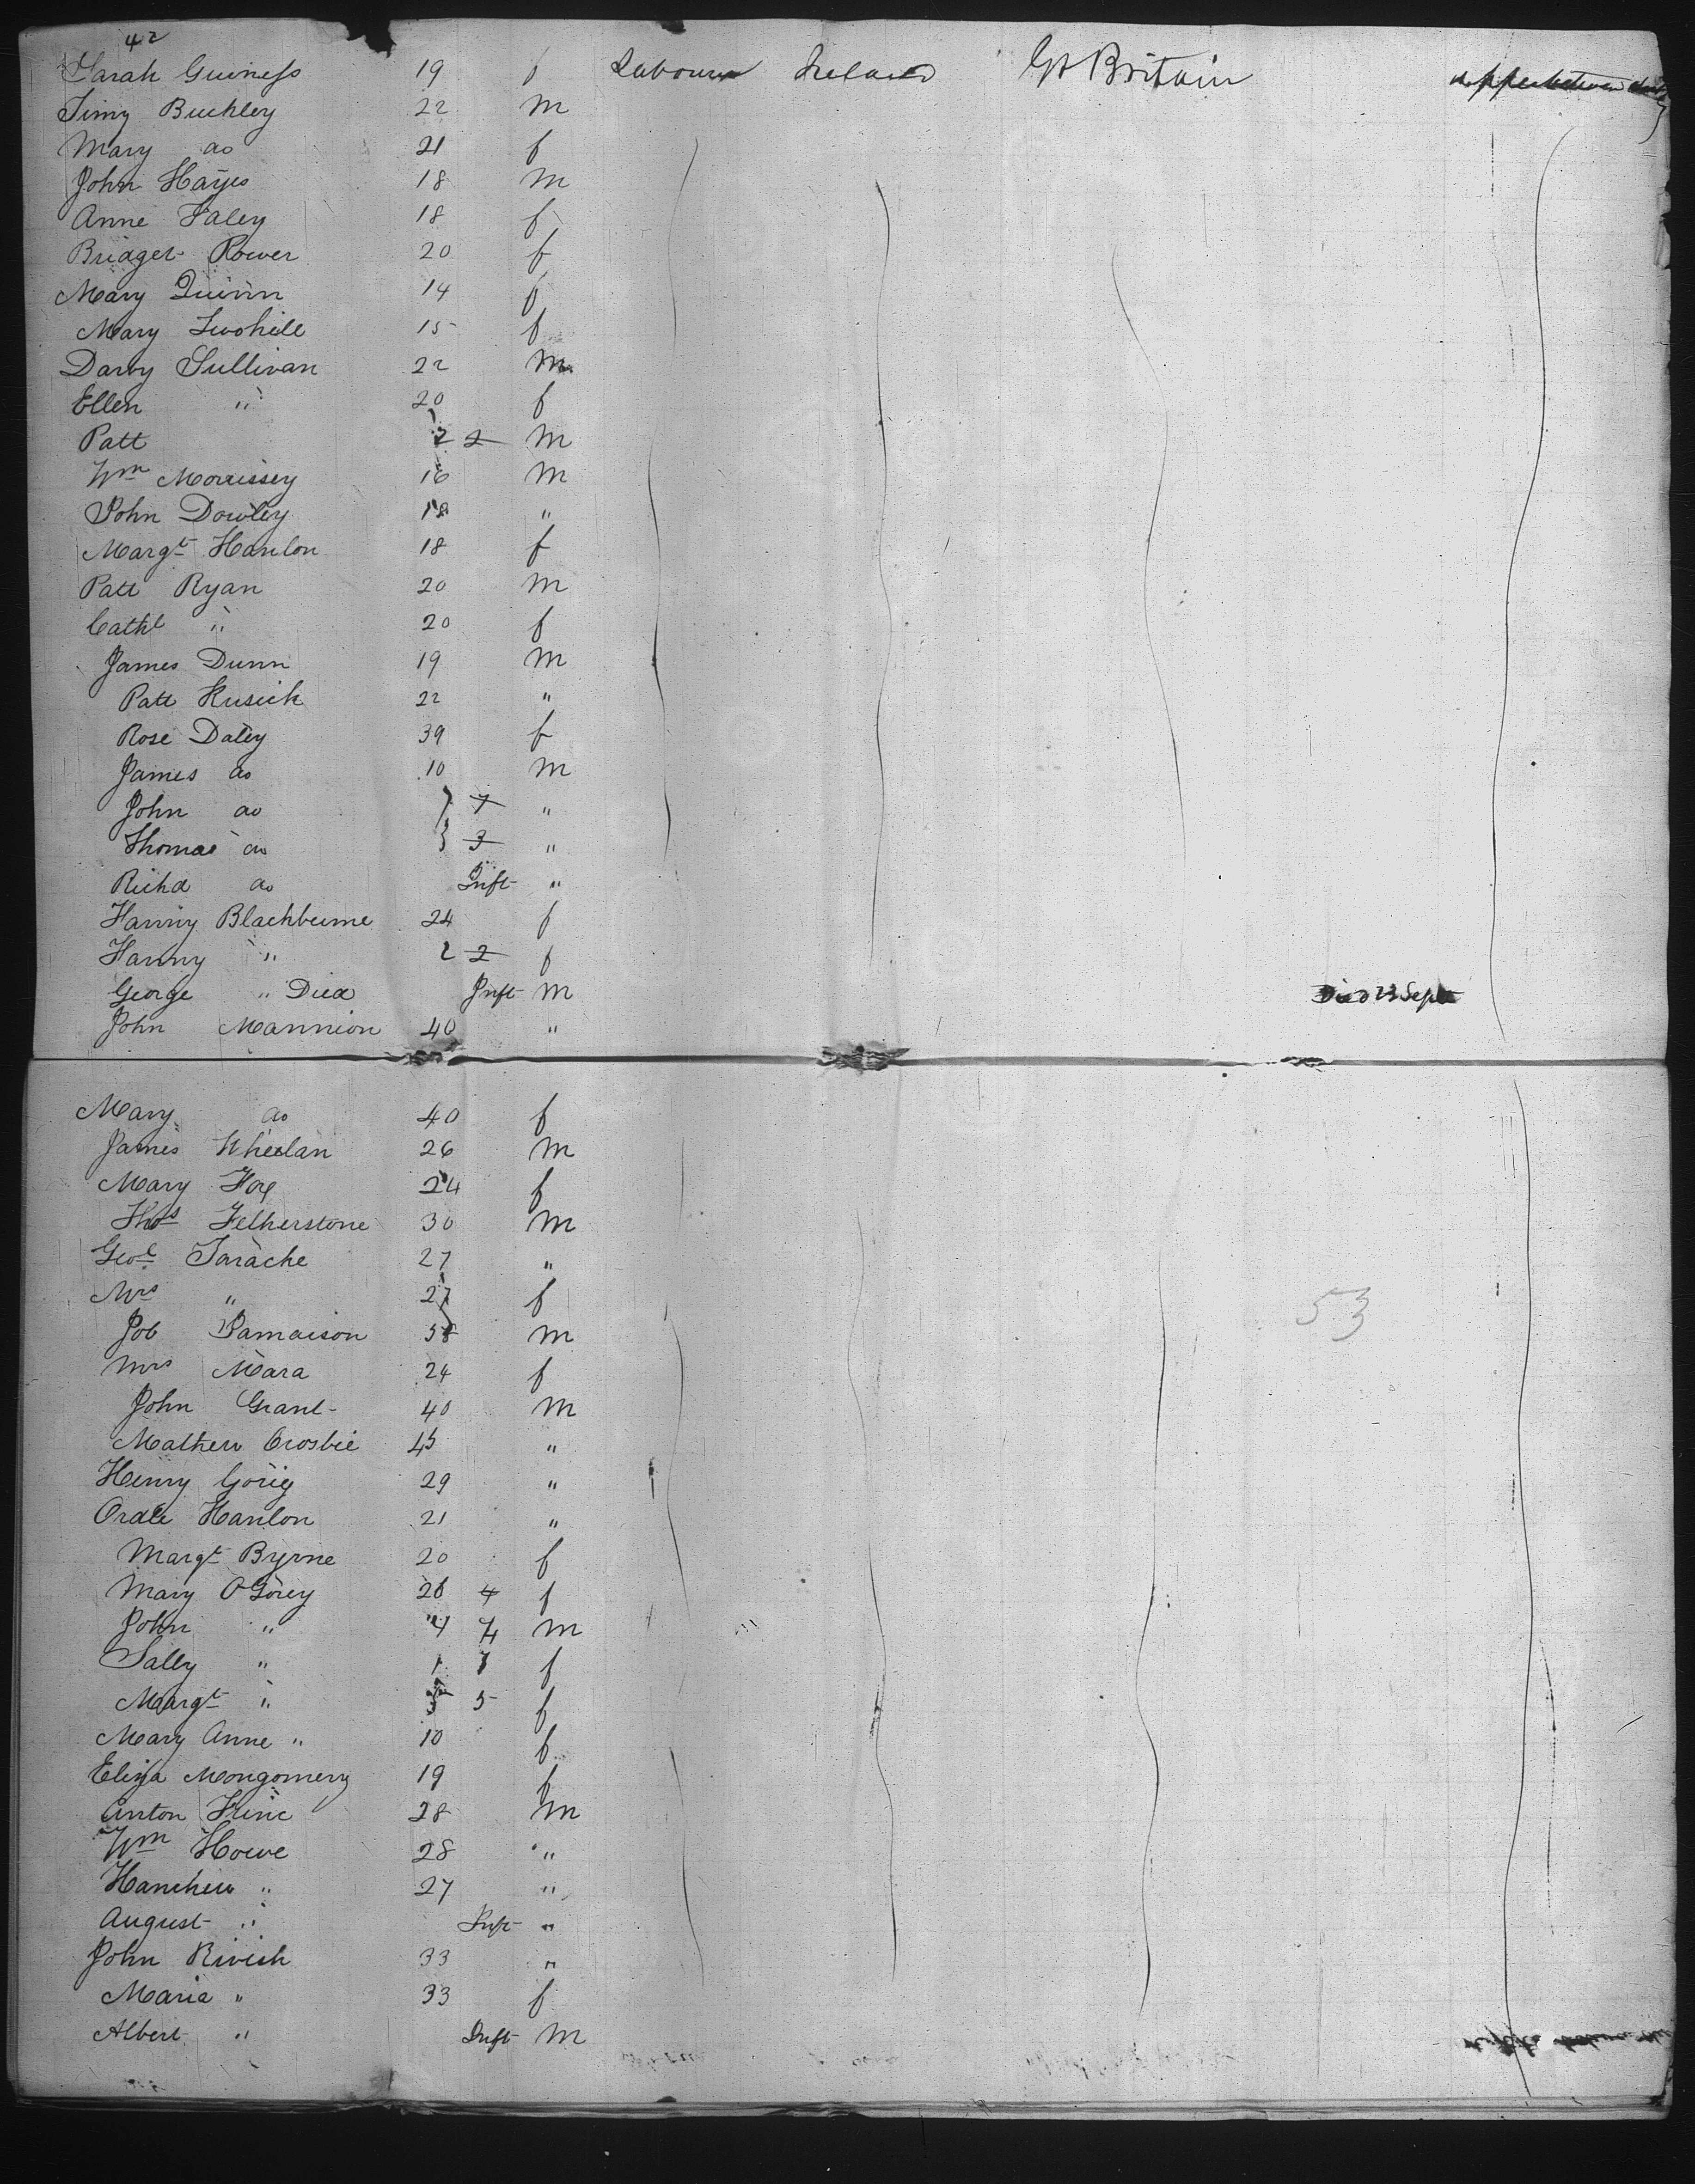 42
Sarah Guiness 19 f Labourer Ireland Gt Britain upper between decks
Timy Buckley 22 m
Mary do 21 f
John Hayes 18 m
Anne Faley 18 f
Bridget Power 20 f
Mary Quinn 14 f
Mary Twohill 15 f
Darby Sullivan 22 m
Ellen " 20 f
Patt 2 2 m
Wm Morrissey 16 m
John Dowley 18 "
Margt Hanlon 18 f
Patt Ryan 20 m
Cathe " 20 f
James Dunn 19 m
Patt Kusick 22 "
Rose Daley 39 f
James do 10 m
John do 7 7 "
Thomas do 3 3 "
Richd do Inft "
Fanny Blackburne 24 f
Fanny " 2 2 f
George " Died Inft m Died 23 Sept
John Mannion 40 "
Mary do 40 f
James Wheelan 26 m
Mary Fox 24 f
Thos Fetherstone 30 m
Geoe Tarache 27 "
Mrs " 27 f
Job Jamaison 58 m
Mrs Mara 24 f
John Grant 40 m
Mathew Crosbie 45 "
Henry Gorig 29 "
Hanlon 21 "
Margt Byrne 20 f
Mary O'Gorey 26 4 f
John " 4 4 m
Sally " 1 f
Margt " 5 5 f
Mary Anne " 10 f
Eliza Montgomery 19 f
Anton 28 m
Wm Howe 28 "
27 "
August " Inft "
John Rivish 33 "
Maria " 33 f
Albert " Inft m
53